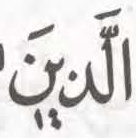 الَّدِينَ